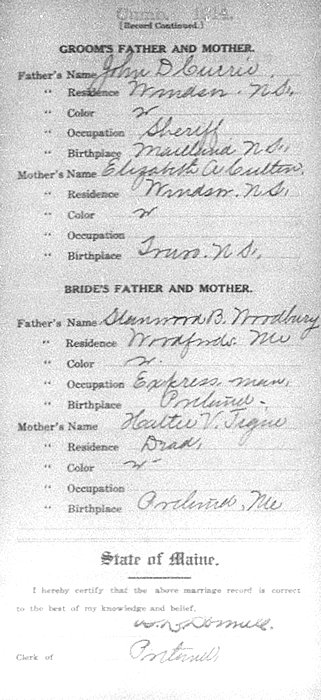 [Record Continued.]
GROOM'S FATHER AND MOTHER.
Father's Name John D Currie
" Residence Windsor. N.S.
" Color W
" Occupation Sheriff
" Birthplace Maitland N.S.
Mother's Name Elizabeth A
" Residence Windsor. N.S.
" Color W
" Occupation
" Birthplace Truro. N.S.
BRIDE'S FATHER AND MOTHER.
Father's Name Stanwood B. Woodbury
" Residence Woodfords. Me
" Color W.
" Occupation Express man.
" Birthplace Portland.
Mother's Name Hattie V.
" Residence Dead.
" Color W
" Occupation
" Birthplace Portland, Me
State of Maine.
I hereby certify that the above marriage record is correct
to the best of my knowledge and belief.
Clerk of Portland